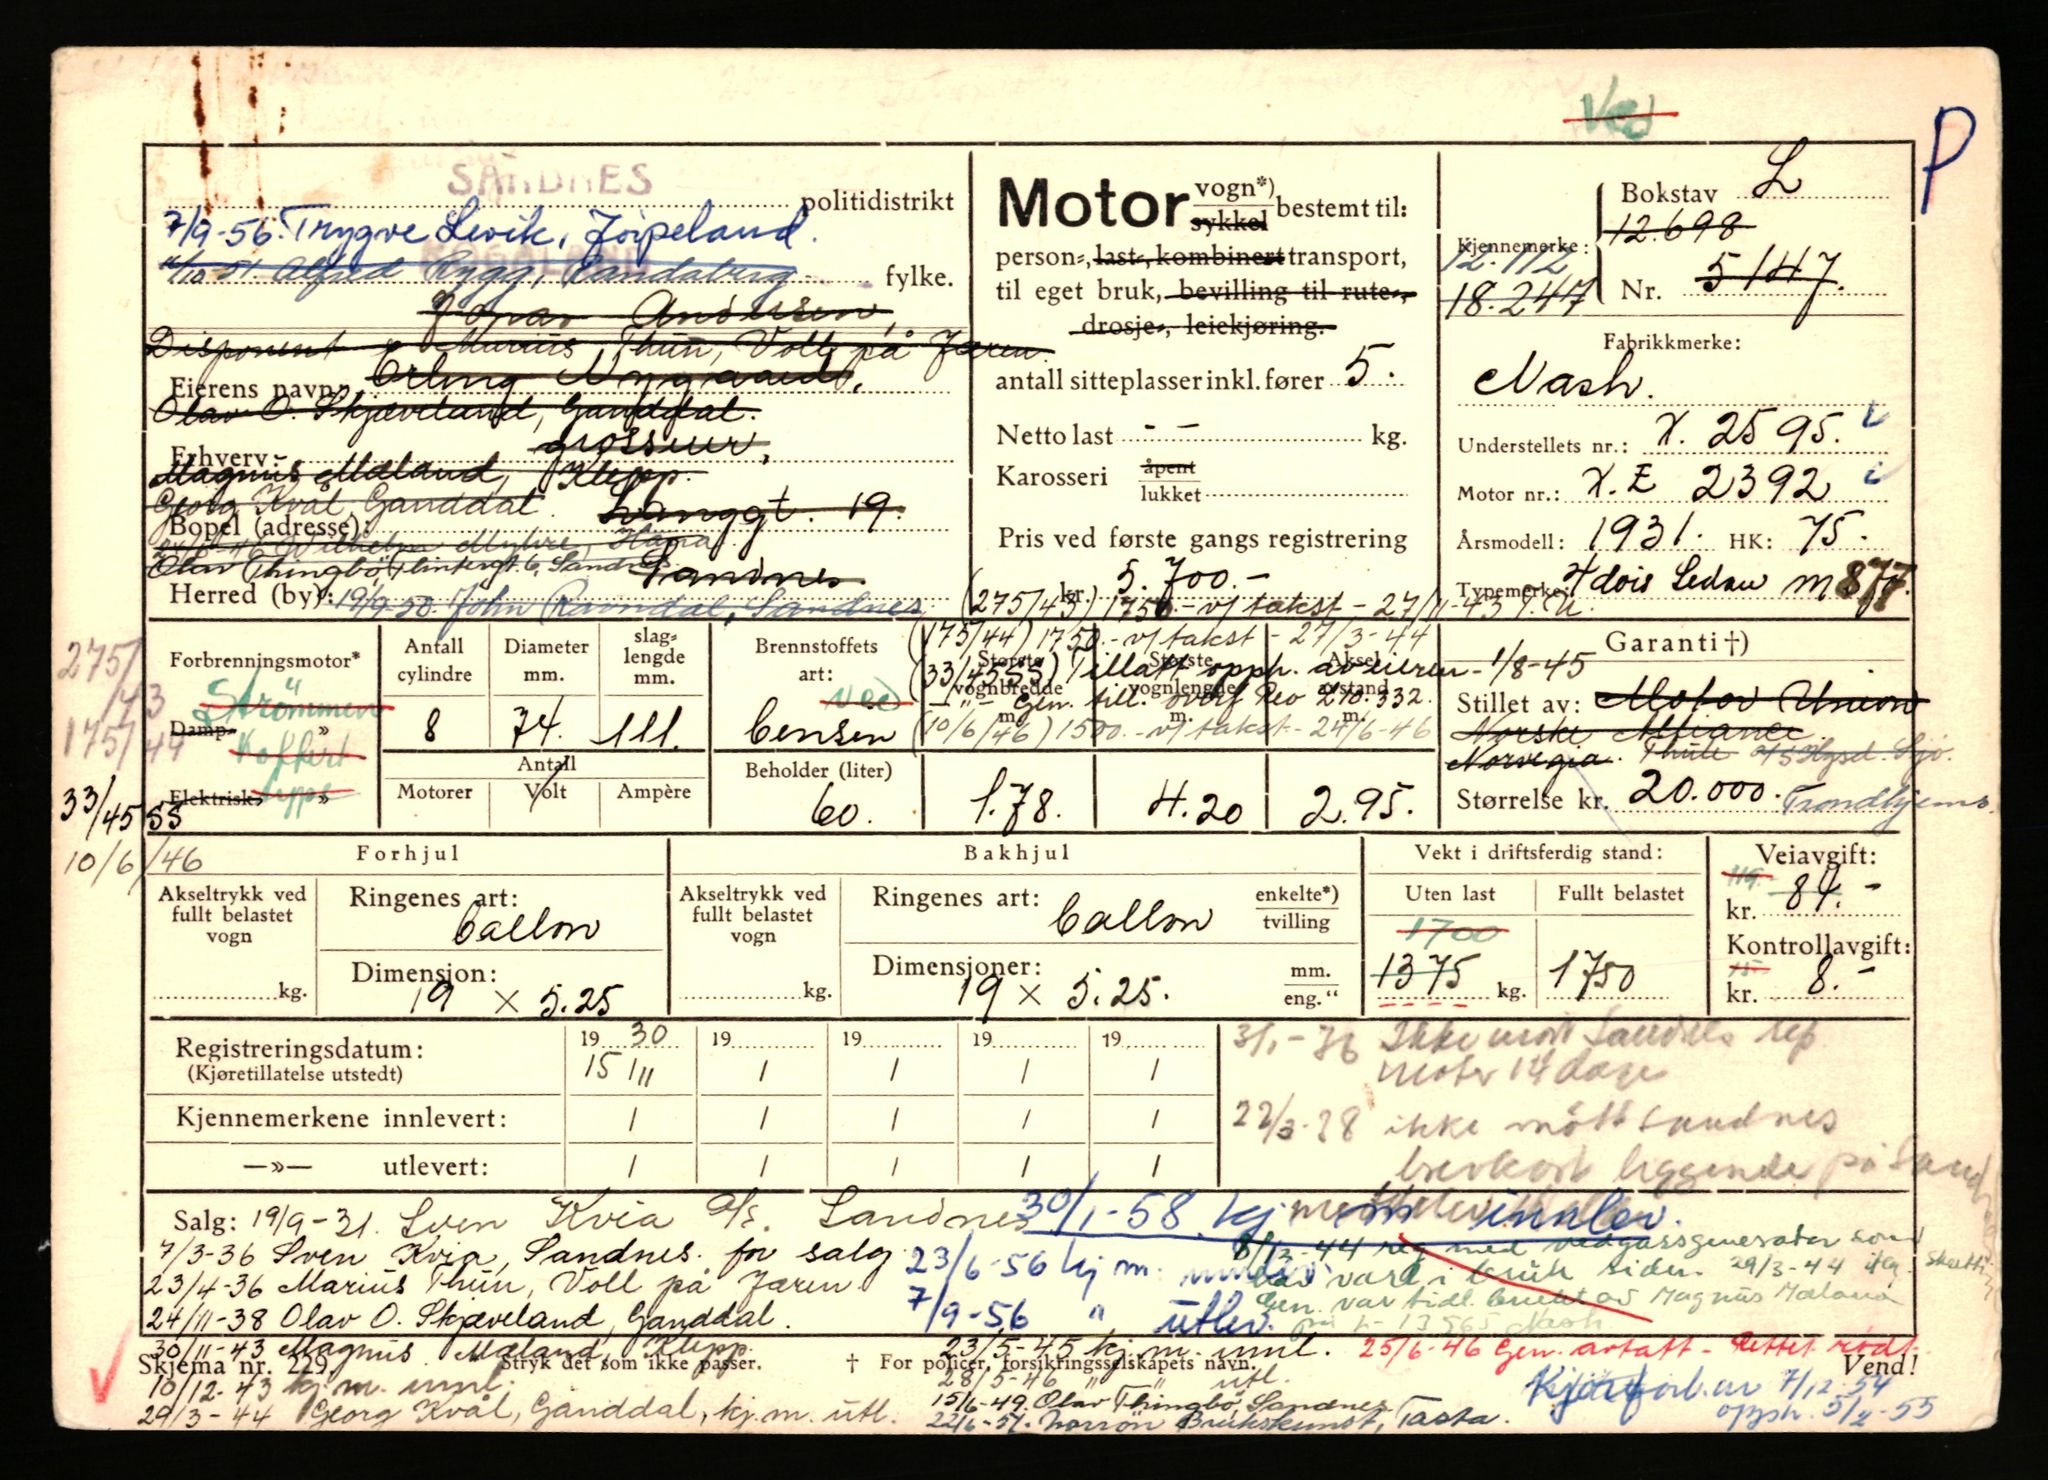 Ved
P
SANDNES
politidistrikt
7/9-56. Trygve Levik, Jörpeland.
ROGALAND
10-51. Alfred Rygg, Randaberg
fylke.
Andersen,
Disponent Marius Thun, Voll på Jæren.
Eierens navn: Erling Nygaard,
Olav O. Skjæveland, Ganddal.
Erhverv: grosserer,
Magnus Mæland, Klepp.
Georg Kvål, Ganddal. Langgt. 19.
Bopel (adresse):
46 Wilhelm Myhre, Hana
Olav Thingbö, Sandnes
Herred (by): Sandnes
19/9-50. John Ravndal, Sandnes.
Motor vogn*) sykkel bestemt til:
person-, last-, kombinert transport,
til eget bruk, bevilling til rute-,
drosje-, leiekjøring.
antall sitteplasser inkl. fører 5.
Netto last - - kg.
Karosseri åpent lukket
Pris ved første gangs registrering
kr. 5.700.-
(275/43) 1750.- v/ takst - 27/11-43
(175/44) 1750.- v/ takst - 27/3-44
(33/45SS) Tillatt opph. av eieren - 1/8-45
-"- Gen. till. 210.332.
(10/6/46) 1500.- v/ takst - 24/6-46
Bokstav L
12.698
Kjennemerke:
12.112
18.247
Nr. 5147.
Fabrikkmerke:
Nash.
Understellets nr.: X. 2595.
Motor nr.: X.E 2392
Årsmodell: 1931. HK: 75.
Typemerke: 4 dörs Sedan m 877.
275/43
175/44
33/45 SS
10/6/46
Forbrenningsmotor*
Strömmen
Damp- »
Koffert
Elektrisk- »
type
Antall cylindre
8
Diameter mm.
74.
slaglengde mm.
111.
Antall
Motorer Volt Ampère
Brennstoffets art:
Ved
bensin
Beholder (liter)
60.
Største vognbredde m.
1.78.
Største vognlengde m.
4.20
Akselavstand m.
2.95.
Garanti †)
Stillet av: Motor Union
Norske Alliance.
Norvegia. Thule
Størrelse kr. 20.000. Trondhjems.
Forhjul
Akseltrykk ved fullt belastet vogn
kg.
Ringenes art:
ballon
Dimensjon:
19 × 5.25
Bakhjul
Akseltrykk ved fullt belastet vogn
kg.
Ringenes art:
ballon
enkelte*)
tvilling
Dimensjoner:
19 × 5.25.
mm.
eng."
Vekt i driftsferdig stand:
Uten last Fullt belastet
1700
1375 kg. 1750
Veiavgift:
119.
kr. 84.-
Kontrollavgift:
15
kr. 8.-
Registreringsdatum:
(Kjøretillatelse utstedt)
19 30 19 19 19 19
15/11 / / / /
Kjennemerkene innlevert:
/ / / / /
—»— utlevert:
/ / / / /
31/1-36 Ikke möt Sandnes rep
motor 14 dage
22/3-38 ikke mött Sandnes
brevkort liggende på Sand
Salg: 19/9-31. Sven Kvia A/S. Sandnes
30/1-58 kj m innlev.
7/3-36 Sven Kvia, Sandnes. for salg
23/4-36 Marius Thun, Voll på Jæren
24/11-38 Olav O. Skjæveland, Ganddal.
30/11-43 Magnus Mæland, Klepp.
10/12-43 kj. m. innl.
29/3-44 Georg Kvål, Ganddal, kj. m. utl.
23/6-56 kj m. innlev
7/9-56 " utlev.
8/12-44 reg med vedgassgenerator som
har vært i bruk siden 29/3-44
Gen. var tidl. brukt av Magnus Mæland
på L-13565 Nash.
23/5-45 kj. m. innl.
28/5-46 " " utl.
15/6-49. Olav Thingbö, Sandnes
22/6-51. Norrön Brukskunst, Tasta.
25/6-46 Gen. avtatt - Rettet rödt.
Kjöreforb. av 7/12-54
opph. 5/2-55
Skjema nr. 229. * Stryk det som ikke passer. † For policer, forsikringsselskapets navn. Vend!